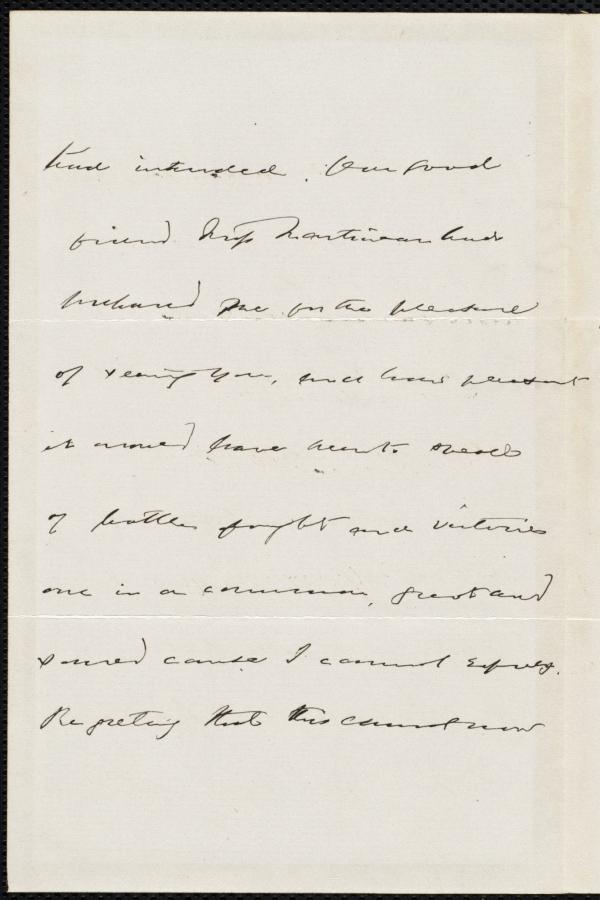 had intended. Our good
friend Miss Martineau had
prepared me for the pleasure
of seeing you, and how pleasant
it would have been to speak
of battles fought and victories
one in a common, great and
sacred cause I cannot express.
Regreting that this cannot now